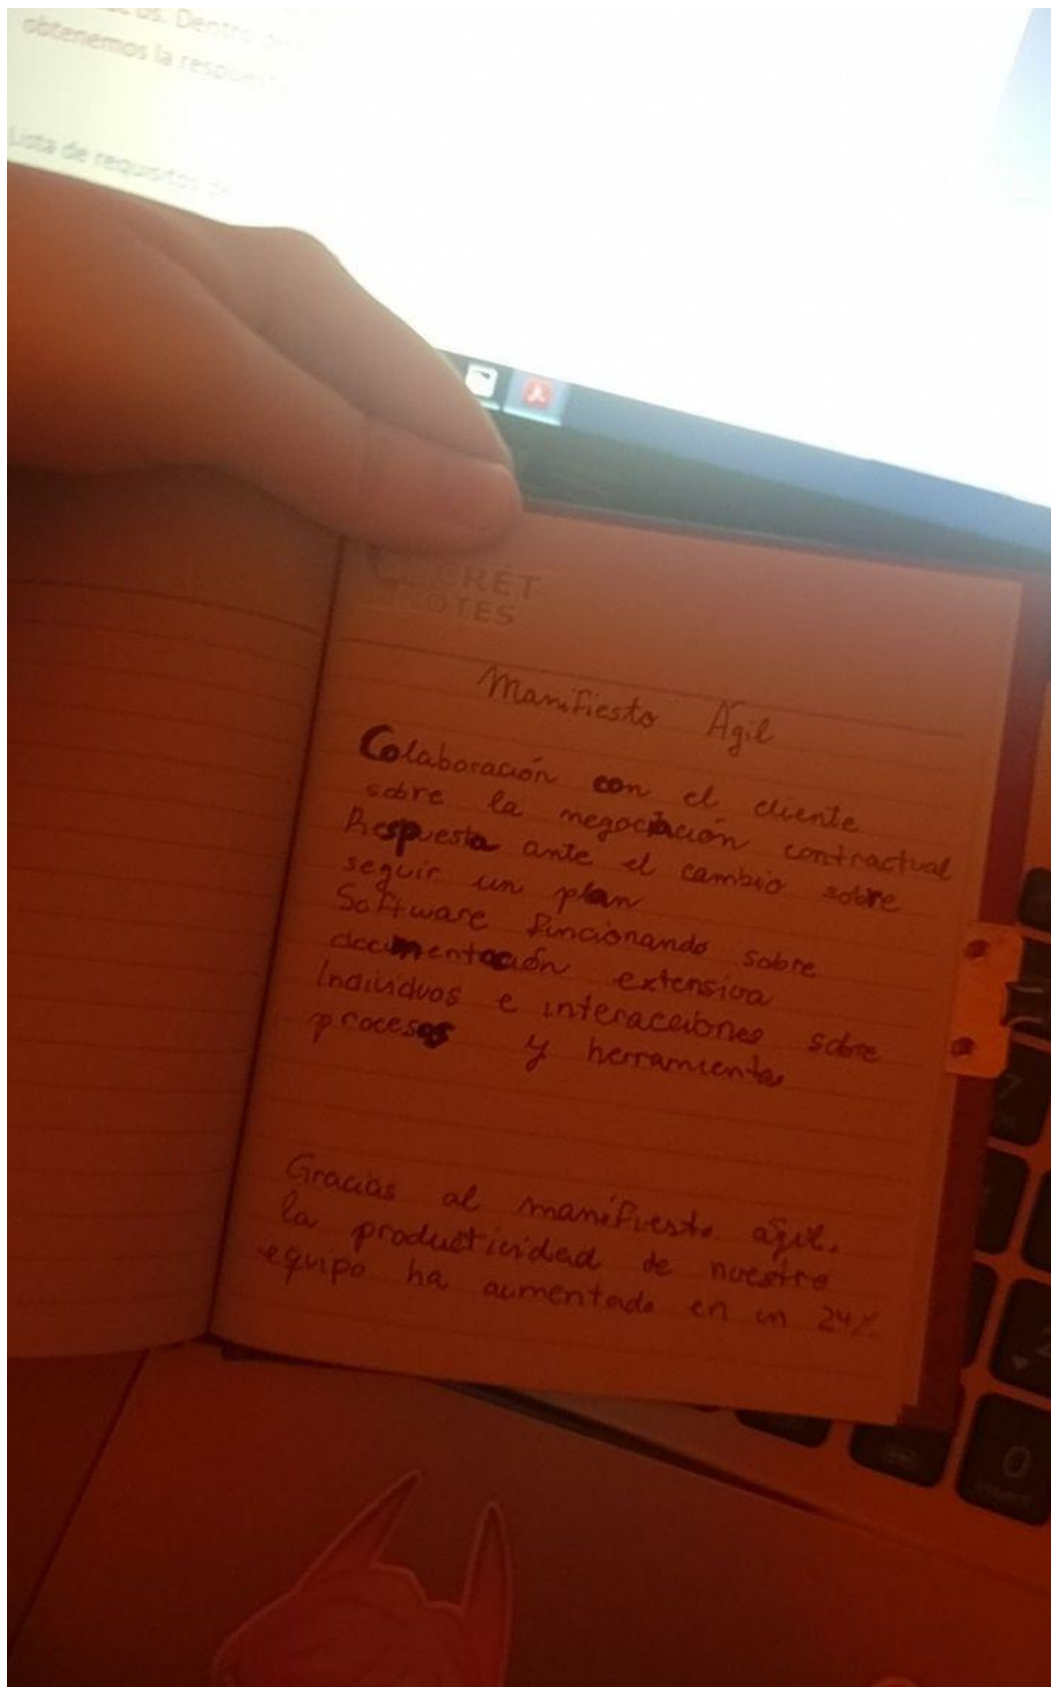 Dentro de
obtenemos la respuesta
Lista de requisitos de
RET
NOTES
Manifiesto Ágil
Colaboración con el cliente
sobre la negociación contractual
Respuesta ante el cambio sobre
seguir un plan
Software funcionando sobre
documentación extensiva
Individuos e interacciones sobre
procesos y herramientas
Gracias al manifiesto ágil.
la productividad de nuestro
equipo ha aumentado en un 24%
7
2
0